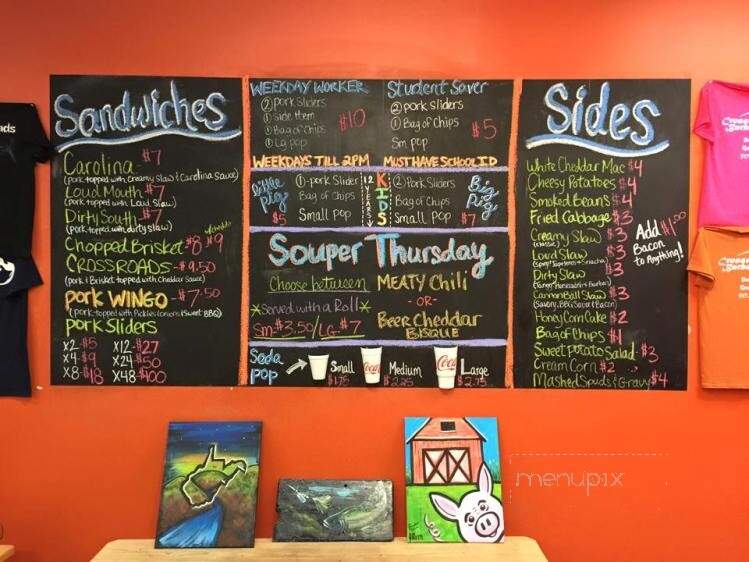 Sandwiches
Carolina - $7
(pork topped with Creamy Slaw & Carolina Sauce)
Loud Mouth - $7
(pork topped with Loud Slaw)
Dirty South - $7
(pork topped with dirty slaw)
Chopped Brisket $8 $9
CROSSROADS - $9.50
(pork & Brisket topped with Cheddar Sauce)
pork WINGO - $7.50
(pork topped with Pickles Onions & Sweet BBQ)
pork Sliders
x2 - $5 x12 - $27
x4 - $9 x24 - $50
x8 - $18 x48 - $100
WEEKDAY WORKER
2 pork Sliders
1 side item
1 Bag of Chips
1 Lg pop
$10
WEEKDAYS TILL 2PM
Student Saver
2 pork sliders
1 Bag of Chips
Sm pop
$5
MUST HAVE SCHOOL ID
little pig
$5
1 - pork Slider
Bag of Chips
Small pop
12 YEARS
KIDS
2 Pork Sliders
Bag of Chips
Small pop
Big Pig
$7
Souper Thursday
Choose between
*Served with a Roll*
Sm $3.50/LG - $7
MEATY Chili
- OR -
Beer Cheddar
BISQUE
Soda pop
Small
$1.75
Coca-Cola
Medium
$2.25
Coca-Cola
Large
$2.75
Sides
White Cheddar Mac $4
Cheesy Potatoes $4
Smoked Beans $4
Fried Cabbage $3
Creamy Slaw - $3
(classic)
Loud Slaw $3
Dirty Slaw $3
CannonBall Slaw $3
Honey Corn Cake $2
Bag of Chips $1
Sweet Potato Salad - $3
Cream Corn $2
Mashed Spuds & Gravy $4
Add $1.00
Bacon
to Anything!
menupix